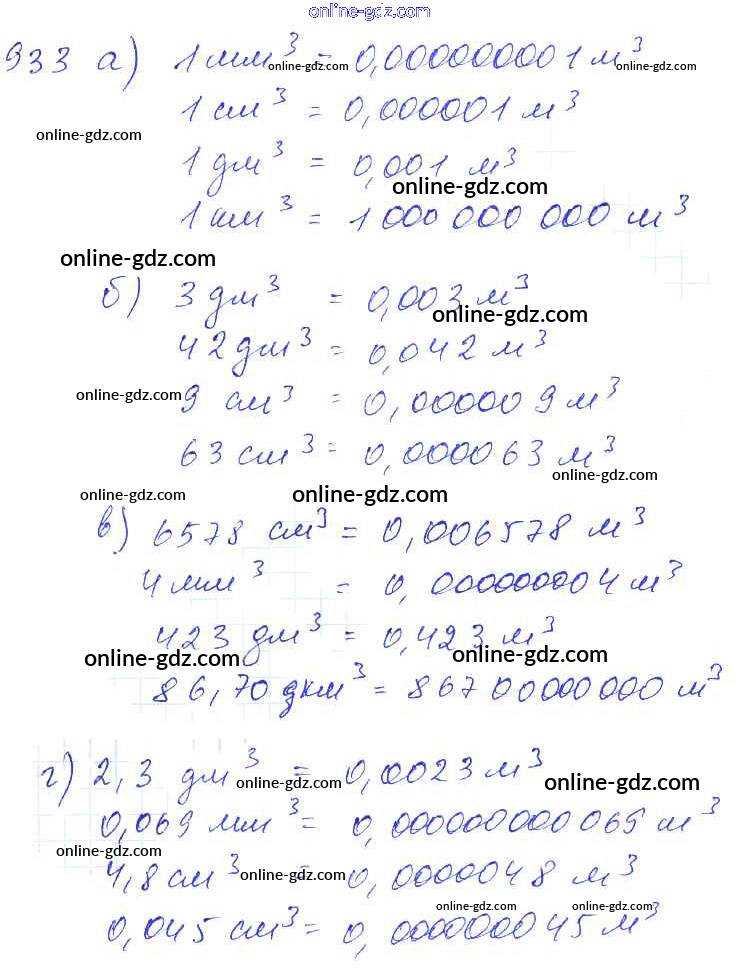 online-gdz.com
933 а) 1 мм³ = 0,000000001 м³
online-gdz.com online-gdz.com
1 см³ = 0,000001 м³
online-gdz.com
1 дм³ = 0,001 м³
online-gdz.com
1 км³ = 1 000 000 000 м³
online-gdz.com
б) 3 дм³ = 0,003 м³
online-gdz.com
42 дм³ = 0,042 м³
online-gdz.com
9 см³ = 0,000009 м³
63 см³ = 0,000063 м³
online-gdz.com
online-gdz.com online-gdz.com
в) 6578 см³ = 0,006578 м³
4 мм³ = 0,000000004 м³
423 дм³ = 0,423 м³
online-gdz.com online-gdz.com
86,70 дкм³ = 86700000000 м³
г) 2,3 дм³ = 0,0023 м³
online-gdz.com online-gdz.com
0,069 мм³ = 0,000000000069 м³
online-gdz.com
4,8 см³ = 0,0000048 м³
online-gdz.com
0,045 см³ = 0,000000045 м³
online-gdz.com